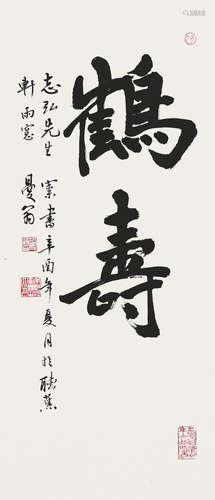 鶴壽
志弘先生 索書辛酉年夏月於聽蕉
軒雨窓 曼翁